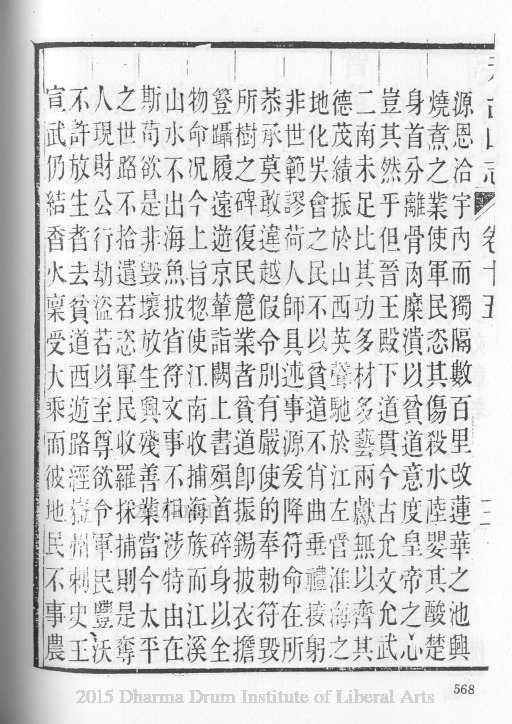 卷十五
源恩洽宇內而獨隔數百里改蓮華之池興
燒煮之業使軍民恣其傷殺水陸嬰其酸楚
身首分離骨肉糜潰以貧道意度皇帝之心
豈其然乎但晉王殿下道貫今古允文允武
二南未足比其功多材多藝兩獻無以齊其
德茂績振於山西英聲馳於江左當淮海之
地化吳會之民不以貧道不肖曲垂禮接躬
非世範謬荷人師具述事源爰降符命在所
恭承莫敢違越假令別有嚴使的奉勅符毀
所樹之碑復民篦業者貧道卽振錫披衣擔
簦躡履遠遊京輦詣闕上書殞首碎身以全
物命况今上旨惣使江南收捕海族而江溪
山水不出海魚披省符文事不相涉特由在
斯苟欲是非毀壞放生興殘善業當今太平
之世路不拾遺若恣軍民收羅採捕則是奪
人現財公行劫盜若以至尊欲令軍民豐沃
不許放生者去貧道西遊路經州刺史王
宣武仍結香火稟受大乘而彼地民不事農
568
2015 Dharma Drum Institute of Liberal Arts